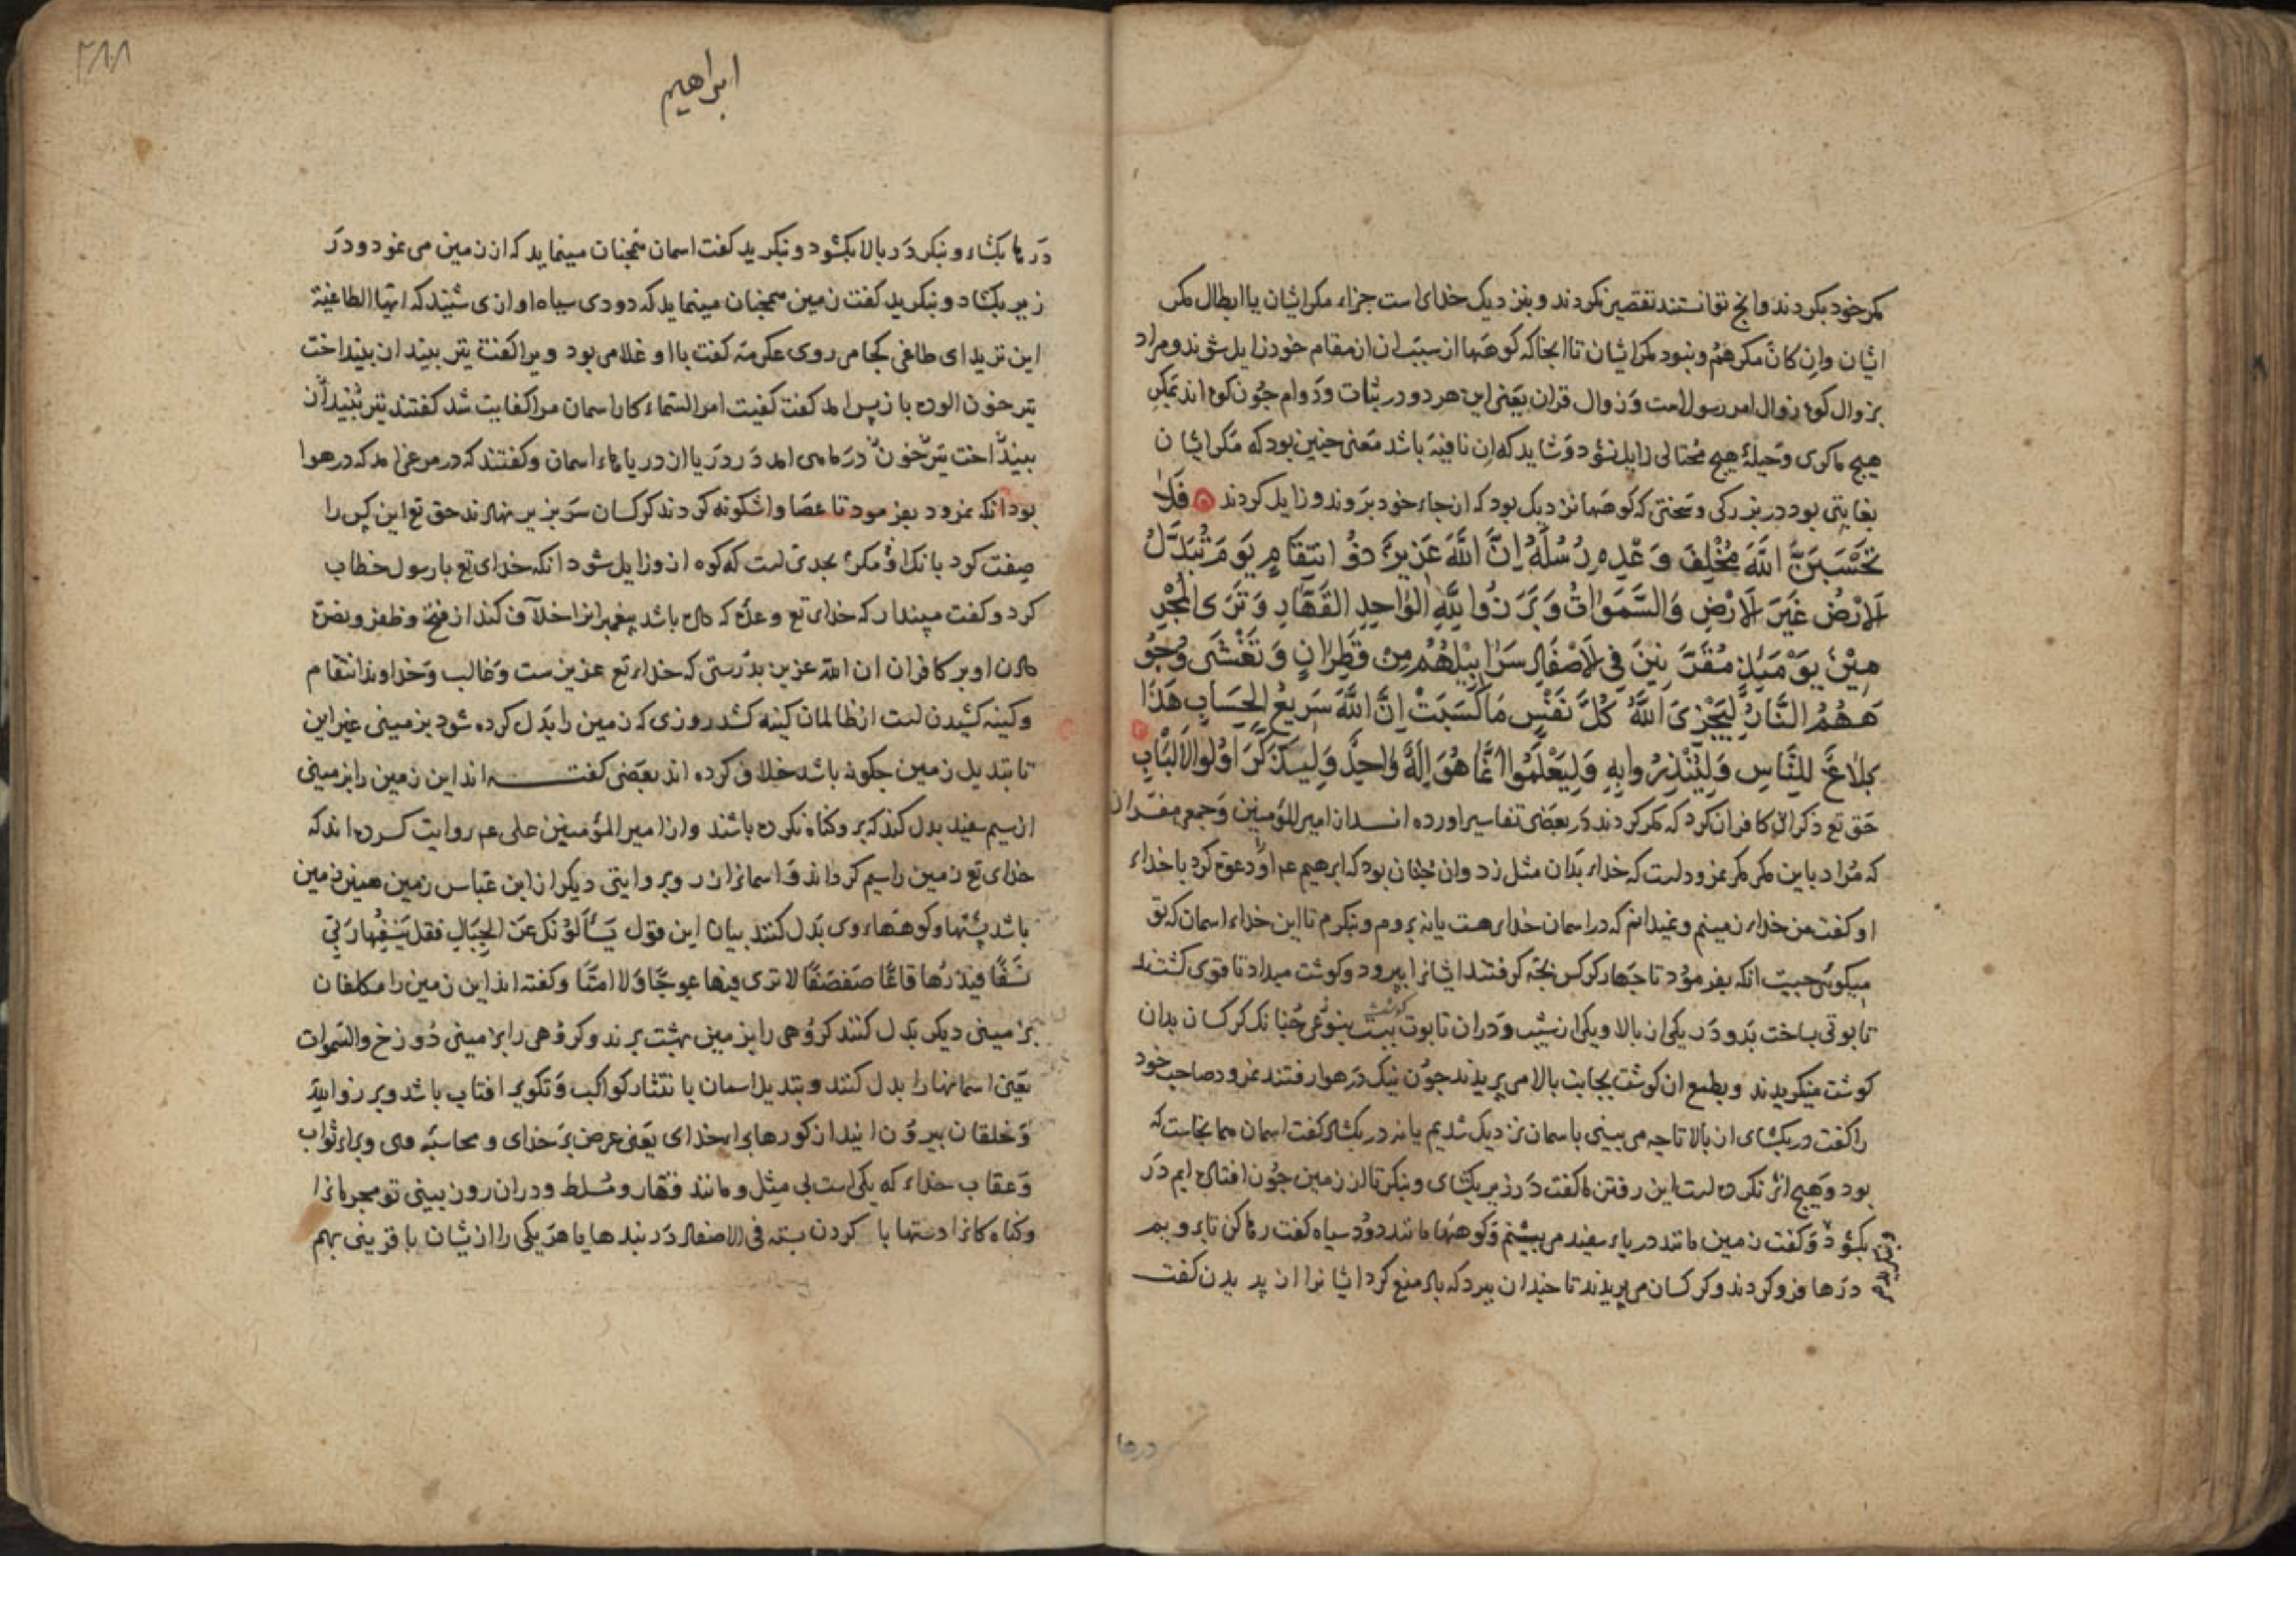 مکر خود بکردند وانچ توانستند تقصیر نکردند و بنزدیک خدای است جزاء مکر ایشان یا ابطال مکر
ایشان وان کان مکرهم و نبود مکر ایشان تا انجا که کوهها از سبب ان از مقام خود زایل شوند و مراد
بزوال کوه زوال امر رسول است و زوال قران یعنی این هر دو در ثبات و دوام چون کوه اند بمکر
هیچ ماکری و حیلهٔ هیچ محتالی زایل نشود و شاید که ان نافیه باشد معنی چنین بود که مکر ایشان
بغایتی بود در بزرکی و سختی که کوهها نزدیک بود که از جاء خود بروند و زایل کردند فَلَا
تَحْسَبَنَّ اللّٰهَ مُخْلِفَ وَعْدِهِ رُسُلَهُ اِنَّ اللّٰهَ عَزِیزٌ ذُو انتِقَامٍ یَوْمَ تُبَدَّلُ
الْاَرْضُ غَیْرَ الْاَرْضِ وَالسَّمَوَاتُ وَبَرَزُوا لِلّٰهِ الْوَاحِدِ الْقَهَّارِ وَتَرَی الْمُجْرِ
مِینَ یَوْمَئِذٍ مُقَرَّنِینَ فِی الْاَصْفَادِ سَرَابِیلُهُمْ مِن قَطِرَانٍ وَتَغْشَی وُجُو
هَهُمُ النَّارُ لِیَجْزِیَ اللّٰهُ کُلَّ نَفْسٍ مَا کَسَبَتْ اِنَّ اللّٰهَ سَرِیعُ الْحِسَابِ هَذَا
بَلَاغٌ لِلنَّاسِ وَلِیُنْذَرُوا بِهِ وَلِیَعْلَمُوا اَنَّمَا هُوَ اِلَهٌ وَاحِدٌ وَلِیَذَّکَّرَ اُولُوا الْاَلْبَابِ
حق تع ذکر ان کافران کرد که مکر کردند در بعضی تفاسیر اورده اند از امیر المؤمنین و جمعی مفسران
که مراد باین مکر مکر نمرود است که خداء بدان مثل زد وان چنان بود که ابرهیم عم او را دعوة کرد با خداء
او کفت من خداء زمینم و نمیدانم که در اسمان خدای هست یا نه بروم و بنکرم تا این خداء اسمان که تو
میکوئی چیست انکه بفرمود تا چهار کرکس بچه کرفتند ایشانرا بپرورد و کوشت میداد تا قوی کشتند
تابوتی بساخت بدو در یکی از بالا و یکی از شیب و دران تابوت کوشت ببست بنوعی چنانک کرکسان بدان
کوشت مینکریدند و بطمع ان کوشت بجانب بالا می پریدند چون نیک در هوا رفتند نمرود صاحب خود
را کفت در بکشای از بالا تا چه می بینی باسمان نزدیک شدیم یا نه در بکشاد کفت اسمان همانجاست که
بود و هیچ اثر نکرده است این رفتن ما کفت در زیر بکشای و بنکر تا از زمین چون افتاده ایم در
بکشود و کفت زمین مانند دریاء سفید می بینم و کوهها مانند دود سیاه کفت رها کن تا برویم
درها فرو کردند و کرکسان می پریدند تا چندان ببرد که باد منع کرد ایشانرا از پریدن کفت
درها
ابراهیم
درها بکشاء و بنکر در بالا بکشود و بنکرید کفت اسمان همچنان مینماید که از زمین می نمود و در
زیر بکشاد و بنکرید کفت زمین همچنان مینماید که دودی سیاه اوازی شنید که ایها الطاغیة
این ترید ای طاغی کجا می روی عکرمه کفت با او غلامی بود ویرا کفت تیر بینداز بینداخت
تیر خون الوده باز پس امد کفت کفیت امر السماء کار اسمان مرا کفایت شد کفتند تیر بینداز
بینداخت تیر خون در ماهی امد در دریا از دریاهاء اسمان و کفتند که در مرغی امد که در هوا
بود انکه نمرود بفرمود تا عصا واشکونه کردند کرکسان سر بزیر نهادند حق تع این کس را
صفت کرد بانک او مکرئ بحدی است که کوه ازو زایل شود انکه خدای تع با رسول خطاب
کرد و کفت مپندار که خدای تع وعده که داده باشد پیغمبرانرا خلاف کند از فتح و ظفر و نصرة
دادن او بر کافران ان الله عزیز بدرستی که خداء تع عزیز ست و غالب و خداوند انتقام
و کینه کشیدن است از ظالمان کینه کشد روزی که زمین را بدل کرده شود بزمینی غیر این
تا تبدیل زمین چکونه باشد خلاف کرده اند بعضی کفته اند این زمین را بزمینی
از سیم سفید بدل کند که برو کناه نکرده باشند و از امیر المؤمنین علی عم روایت کرده اند که
خدای تع زمین را سیم کرداند و اسمانرا زر و بروایتی دیکر از ابن عباس زمین همین زمین
باشد پشتها و کوههاء وی بدل کنند بیان این قول یَسْأَلُونَکَ عَنِ الْجِبَالِ فَقُلْ یَنْسِفُهَا رَبِّی
نَسْفًا فَیَذَرُهَا قَاعًا صَفْصَفًا لا تری فیها عِوَجًا وَلا اَمْتًا و کفته اند این زمین را مکلفان
بزمینی دیکر بدل کنند کروهی را بزمین بهشت برند و کروهی را بزمینی دوزخ والسموات
یعنی اسمانها را بدل کنند و تبدیل اسمان بانتثار کواکب و تکویر افتاب باشد و برزوا لله
و خلقان بیرون ایند از کورها براء خدای یعنی عرض بر خدای و محاسبه وی و براء ثواب
و عقاب خداء که یکی است بی مثل و مانند و قهار و مسلط و دران روز بینی تو مجرمانرا
و کناه کارانرا دستها با کردن بسته فی الاصفاد در بندها یا هر یکی را از یشان با قرینی بهم